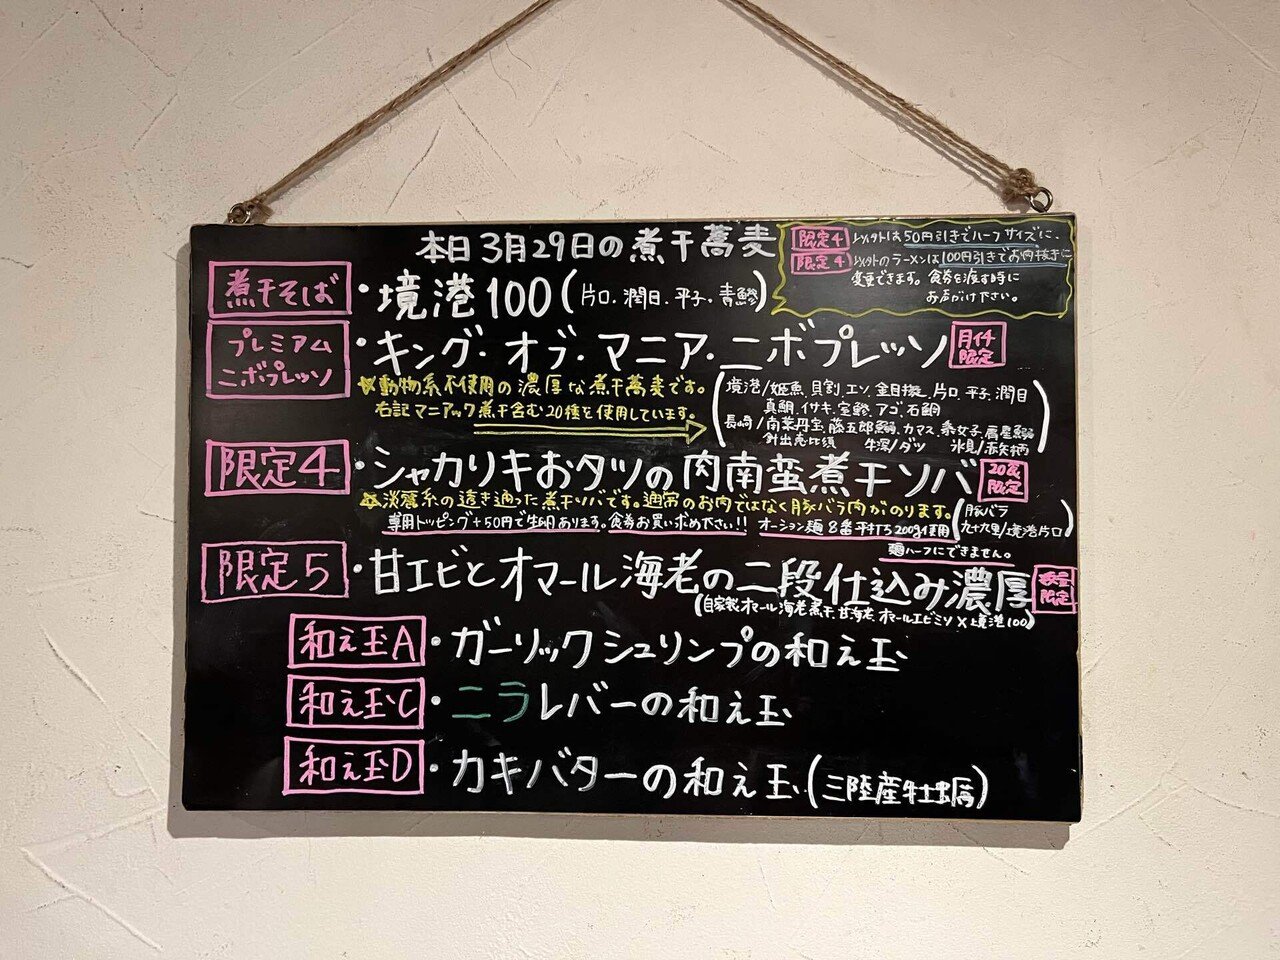 本日3月29日の煮干蕎麦
限定4 以外は50円引きでハーフサイズに、
限定4 以外のラーメンは100円引きでお肉抜きに
変更できます。食券を渡す時に
お声がけ下さい。
煮干そば ・境港100(片口.潤目.平子.青鯵)
プレミアムニボプレッソ ・キング・オブ・マニア・ニボプレッソ 月イチ限定
☆動物系不使用の濃厚な煮干蕎麦です。
右記マニアック煮干含む20種を使用しています。
境港/姫魚.貝割.エソ.金目.片口.平子.潤目
真鯛.イサキ.室鯵.アゴ.石鯛
長崎/南蛮丹宝.藤五郎鰯.カマス.糸女子.
針出恵比須 牛深/ダツ 氷見/赤矢柄
限定4 ・シャカリキおタツの肉南蛮煮干ソバ 20食限定
☆淡麗系の透き通った煮干ソバです。通常のお肉ではなく豚バラ肉がのります。
(豚バラ
九十九里/境港片口)
専用トッピング+50円で生卵あります。食券お買い求め下さい!! オーション麺8番平打ち200g使用
麺ハーフにできません。
限定5 ・甘エビとオマール海老の二段仕込み濃厚 数量限定
(自家製オマール海老煮干.甘海老.オマールエビミソ×境港100)
和え玉A ・ガーリックシュリンプの和え玉
和え玉C ・ニラレバーの和え玉
和え玉D ・カキバターの和え玉.(三陸産牡蠣)